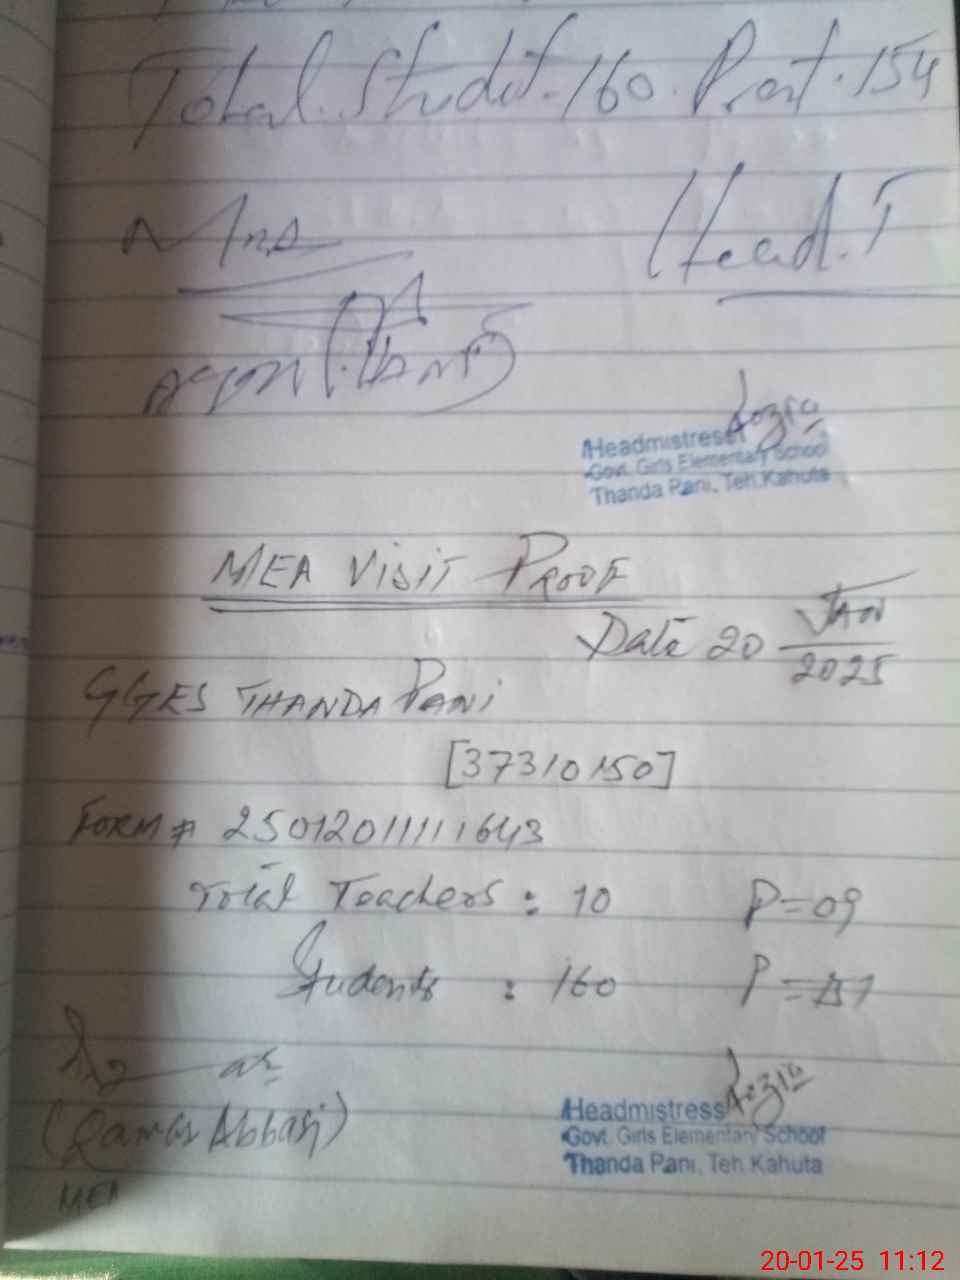 Total. Studet. 160. Prest. 154
Head. T
Headmistress
Govt. Girls Elementary School
Thanda Pani, Teh. Kahuta
MEA Visit Proof
Date 20 Jan
2025
GGES THANDA Pani
[37310150]
FORM # 25012011111643
Total Teachers : 10 P=09
Students : 160 P=151
(Qamar Abbasi)
MEA
Headmistress
Govt. Girls Elementary School
Thanda Pani, Teh. Kahuta
20-01-25 11:12